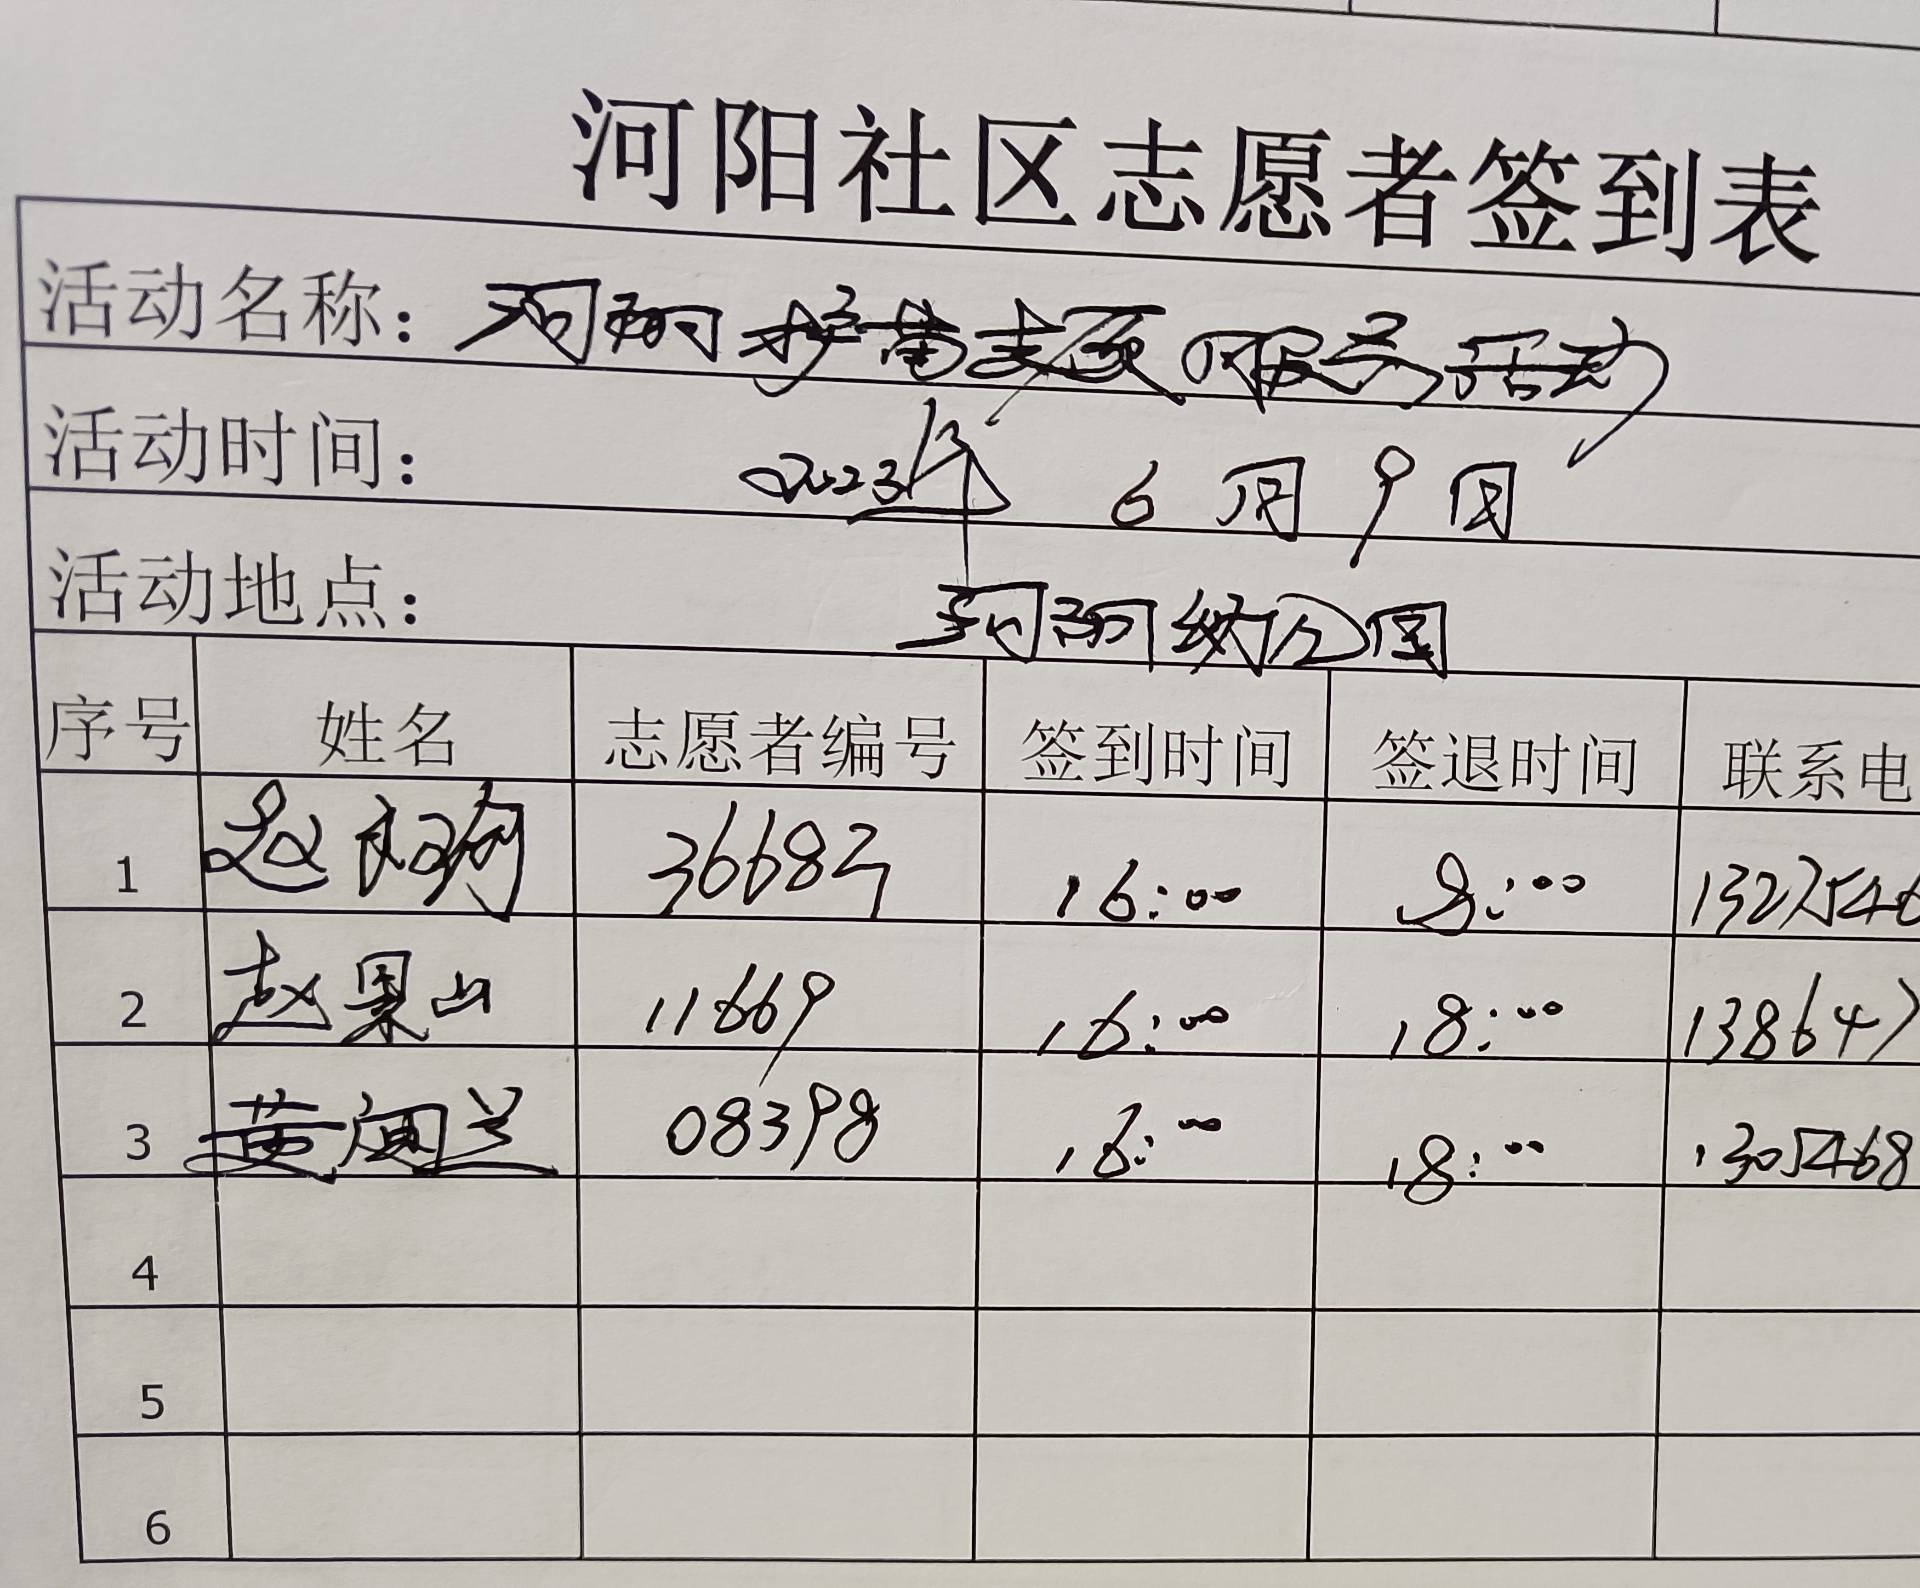 河阳社区志愿者签到表
活动名称：河阳护苗志愿服务活动
活动时间：2023年 6月9日
活动地点：河阳 公园
序号 姓名 志愿者编号 签到时间 签退时间 联系电
1 赵 3668 16:00 18:00 1327546
2 赵果山 11669 16:00 18:00 138647
3 黄 兰 08398 16:00 18:00 1305468
4
5
6